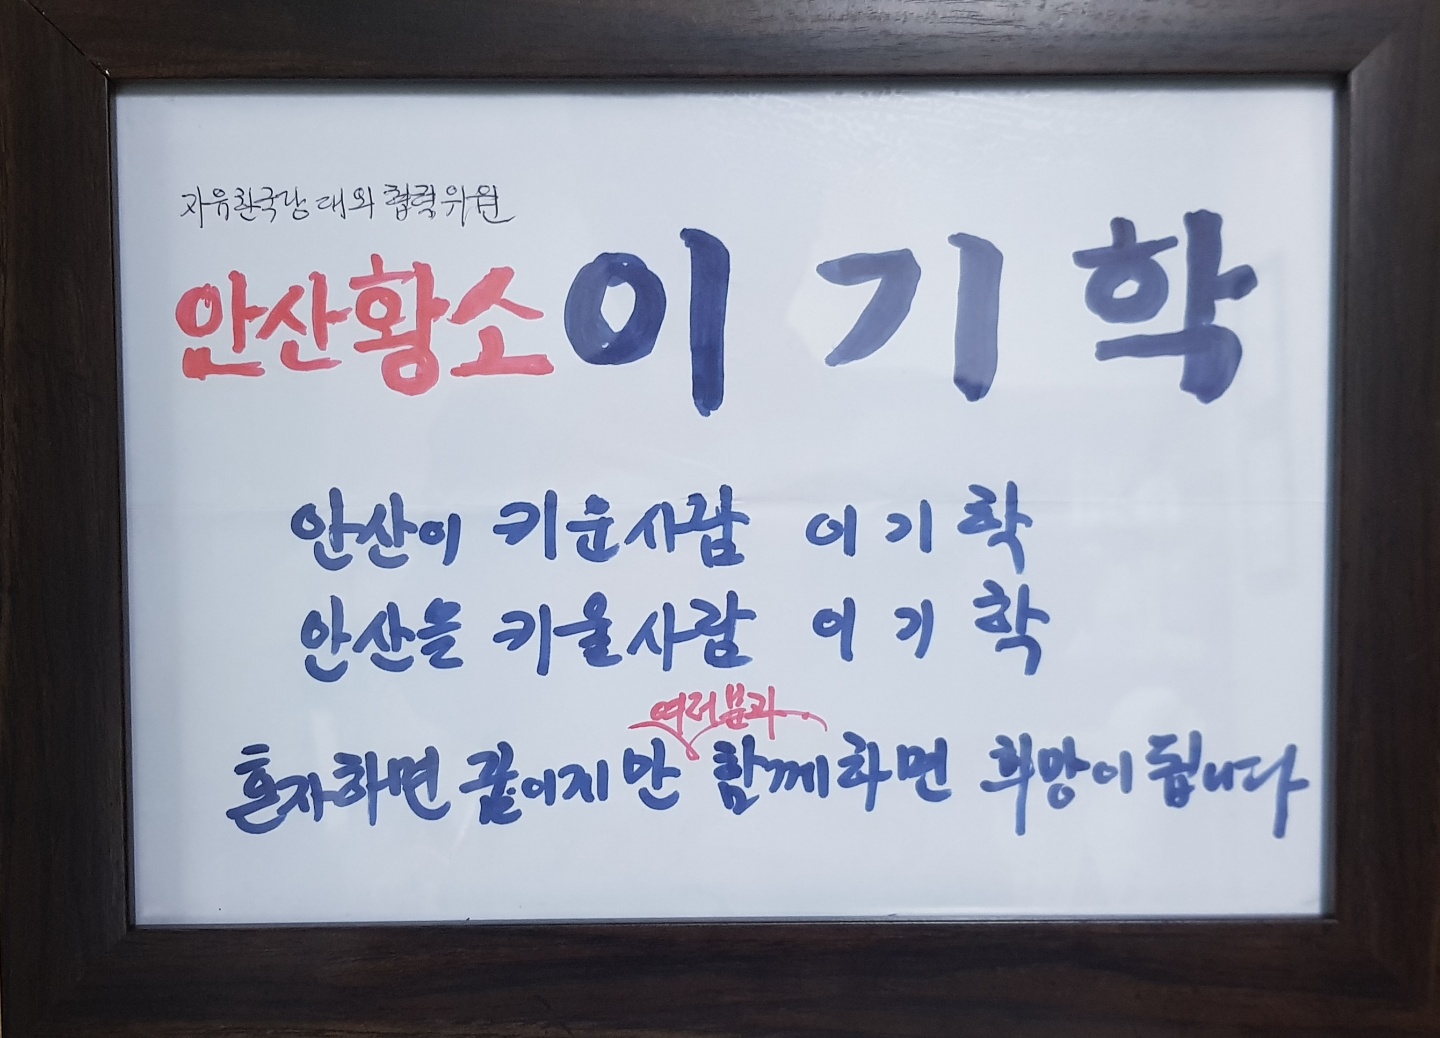 자유한국당 대외 협력위원
안산황소 이기학
안산이 키운사람 이기학
안산을 키울사람 이기학
여러분과
혼자하면 끝이지만 함께하면 희망이 됩니다